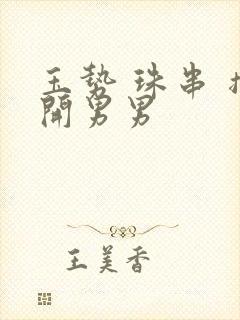 玉势 珠串
開男男
王美香